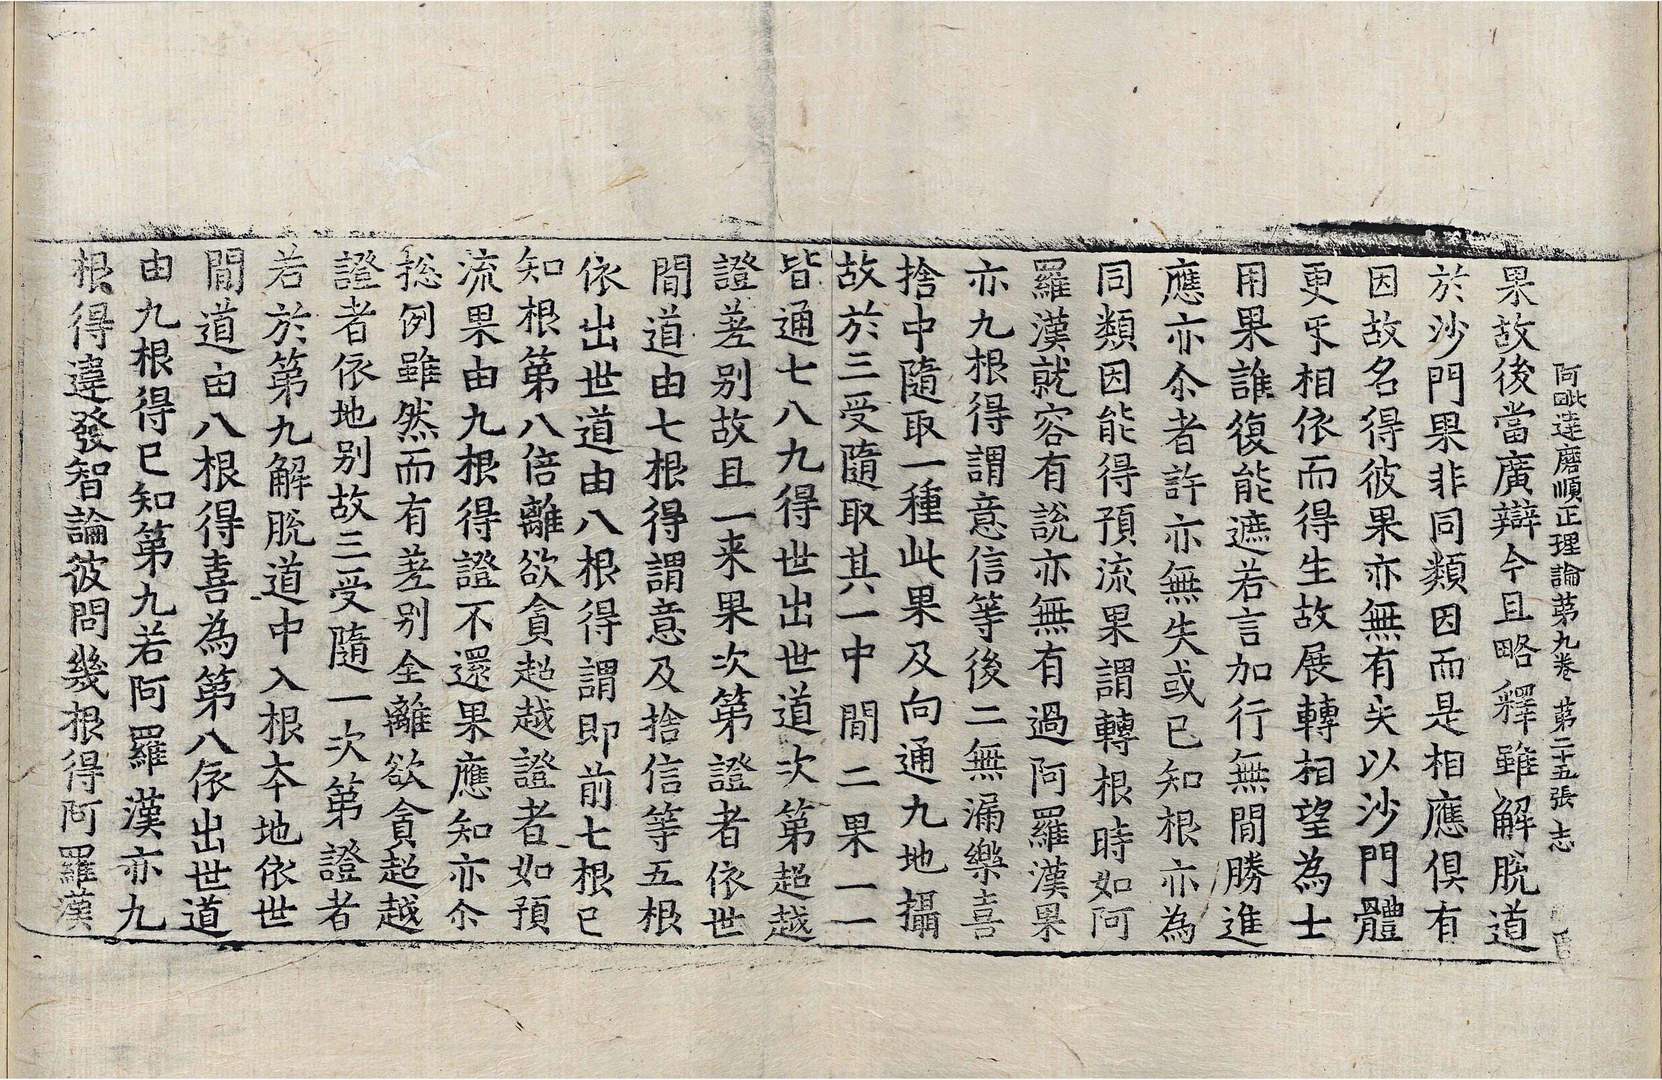 阿毗達磨順正理論第九卷 第二十五張 志
果故後當廣辯今且略釋雖解脫道
於沙門果非同類因而是相應俱有
因故名得彼果亦無有失以沙門體
更乑相依而得生故展轉相望為士
用果誰復能遮若言加行無間勝進
應亦尒者許亦無失或已知根亦為
同類因能得預流果謂轉根時如阿
羅漢就容有說亦無有過阿羅漢果
亦九根得謂意信等後二無漏樂喜
捨中隨取一種此果及向通九地攝
故於三受隨取其一中間二果一一
皆通七八九得世出世道次第超越
證差别故且一来果次第證者依世
間道由七根得謂意及捨信等五根
依出世道由八根得謂即前七根已
知根第八倍離欲貪超越證者如預
流果由九根得證不還果應知亦尒
捴例雖然而有差别全離欲貪超越
證者依地别故三受隨一次第證者
若於第九解脫道中入根夲地依世
間道由八根得喜為第八依出世道
由九根得已知第九若阿羅漢亦九
根得違發智論彼問幾根得阿羅漢